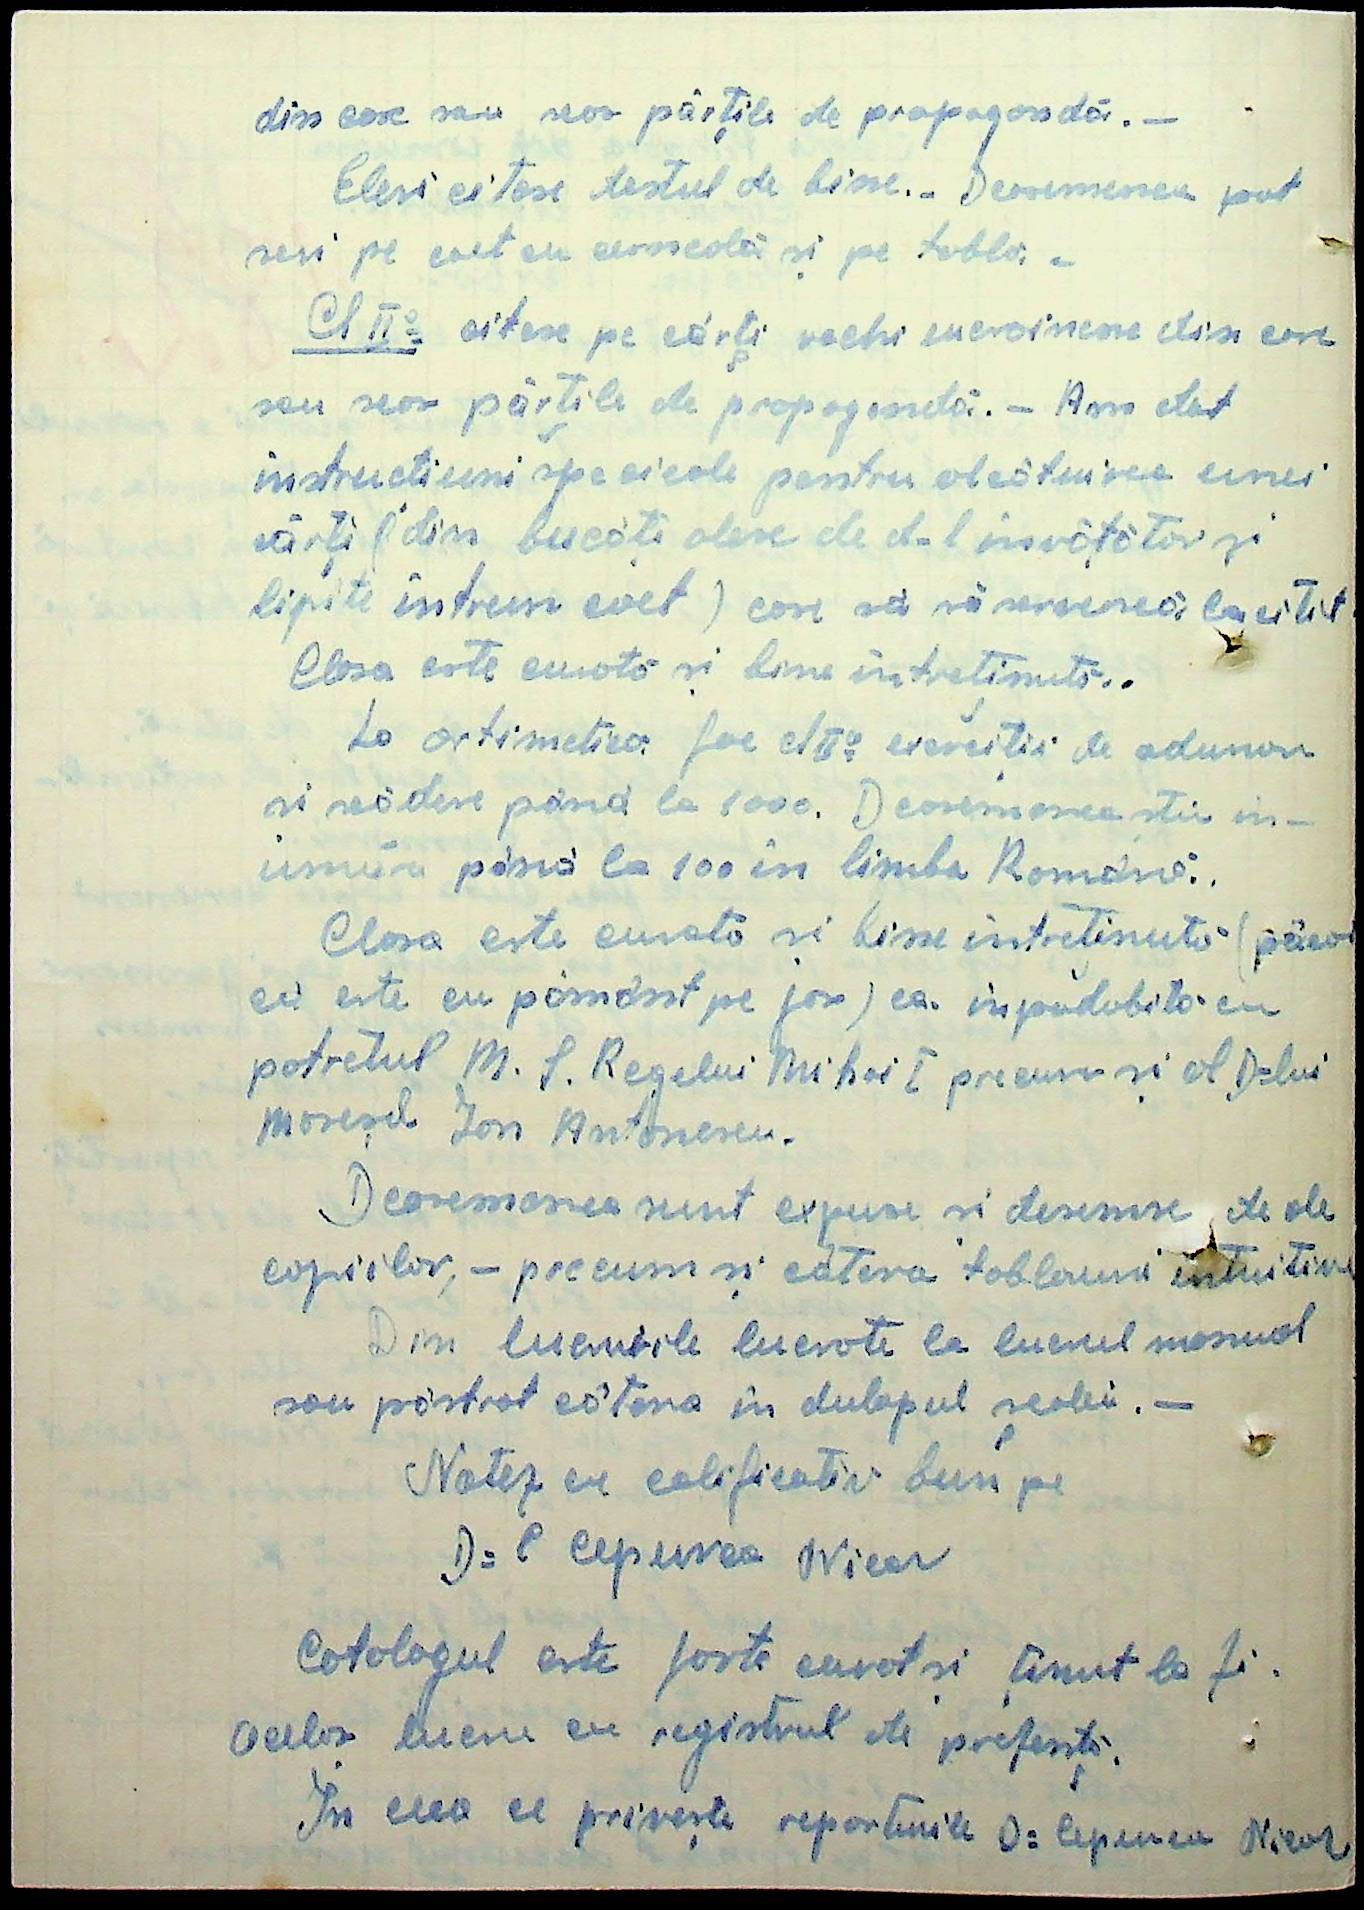 din care sau scos părțile de propagandă. –
Elevi citesc textul de bine. – Deasemenea pot
scri pe caet cu cerneală și pe tablă –
Cl IIa citesc pe cărți vechi ucrainene din care
sau scos părțile de propagandă. – Am dat
instrucțiuni speciale pentru alcătuirea unei
cărți (din bucăți alese de d-l învățător și
lipite întrun caet) care să să servească la citit.
Clasa este curată și bine întreținută..
La aritmetica fac cl IIa exerciții de adunare
si scădere până la 1000. Deasemenea știu in-
număra până la 100 în limba Română..
Clasa este curată și bine întreținută (păcat
că este cu pământ pe jos) ea înpodobită cu
potretul M. S. Regelui Mihai I precum și al D-lui
Mareșal Ion Antonescu.
Deasemenea sunt expuse și desemne de ale
copiilor, – precum și câteva tablouri intuitive
Din lucrările lucrate la lucrul manual
sau păstrat câteva în dulapul școlii. –
Notez cu calificativ bun pe
D-l Cepurnea Nicor
Catalogul este foarte curat și ținut la zi.
Acelaș lucru cu registrul de prezență.
În ceea ce privește reporturile D-l Cepurnea Nicor